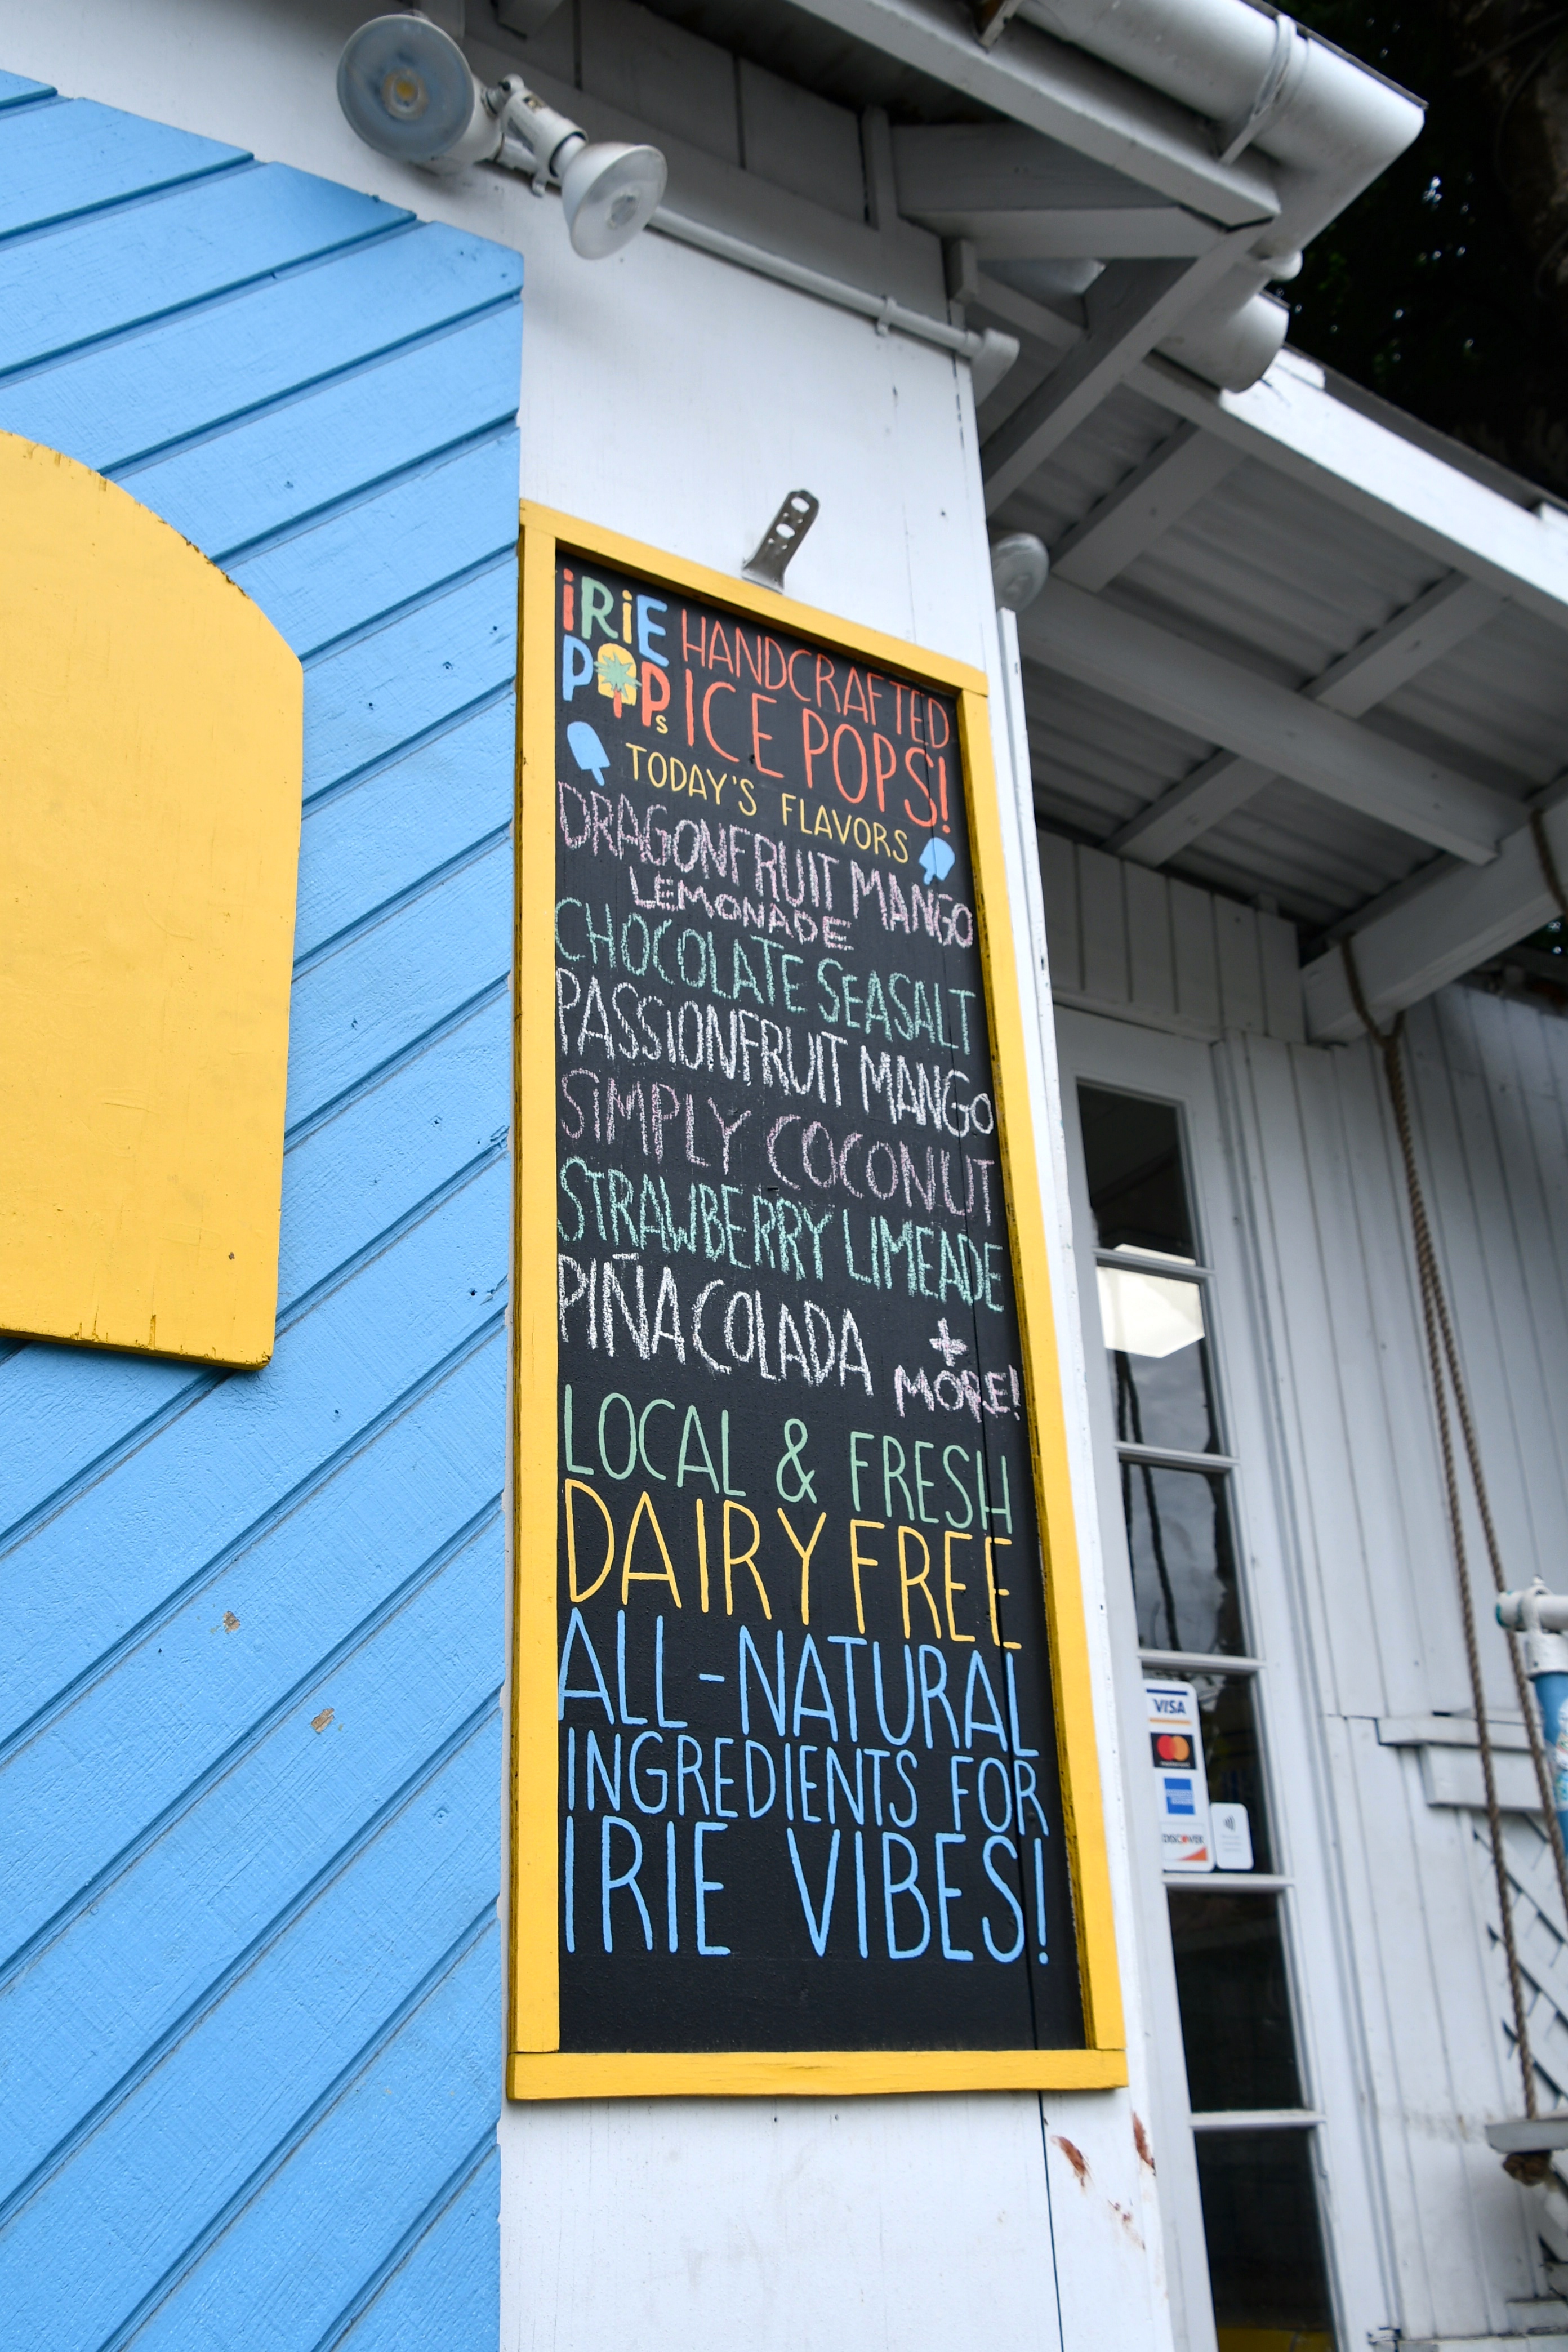 iRiE
POPs
HANDCRAFTED
ICE POPS!
TODAY'S FLAVORS
DRAGONFRUIT MANGO
LEMONADE
CHOCOLATE SEASALT
PASSiONFRUIT MANGO
SiMPLY COCONUT
STRAWBERRY LIMEADE
PIÑA COLADA
+
MORE!
LOCAL & FRESH
DAIRY FREE
ALL-NATURAL
INGREDIENTS FOR
IRIE VIBES!
VISA
DISCOVER